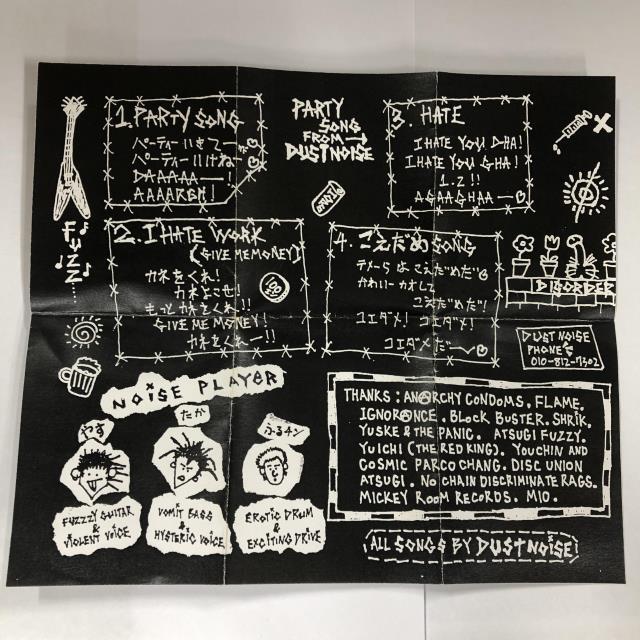 1. PARTY SONG
パーティーいきてー
パーティーいけねー
DAAAAA—!
AAAARGH!
PARTY
SONG
FROM→
DUSTNOISE
3. HATE
I HATE YOU DHA!
I HATE YOU GHA!
1.2!!
AGAAGHAA—
FUZZ.....
2. I HATE WORK
(GIVE ME MONEY)
カネをくれ!
カネよこせ!
もっとカネをくれ!!
GIVE ME MONEY!
カネをくれー!!
4. こえだめSONG
テメーらはこえだめだ
かわいーカオして
こえだめだ!
コエダメ! コエダメ!
コエダメだ〜
DISORDER
DUST NOISE
PHONE
010-812-7302
NOISE PLAYER
やす
FUZZZY GUITAR
&
VIOLENT VOICE
たか
VOMIT BASS
&
HYSTERIC VOICE
ふるチン
EROTIC DRUM
&
EXCITING DRIVE
THANKS: ANARCHY CONDOMS. FLAME.
IGNORANCE. BLOCK BUSTER. SHRIK.
YUSKE & THE PANIC. ATSUGI FUZZY.
YUICHI (THE RED KING). YOUCHIN AND
COSMIC PARCO CHANG. DISC UNION
ATSUGI. NO CHAIN DISCRIMINATE RAGS.
MICKEY ROOM RECORDS. MIO.
ALL SONGS BY DUSTNOISE!